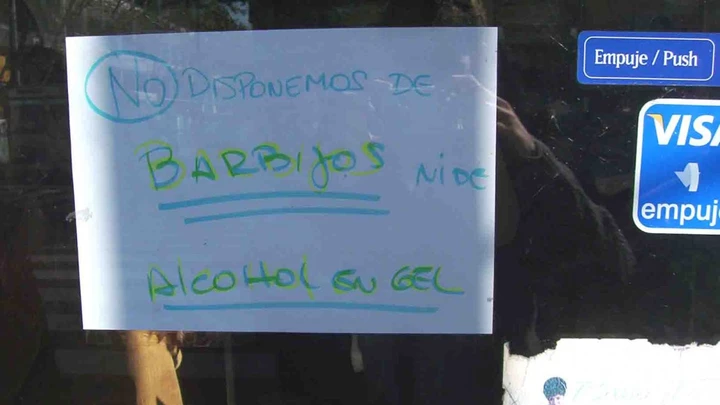 NO DISPONEMOS DE
BARBIJOS NI DE
ALCOHOL EN GEL
Empuje / Push
VISA
empuje